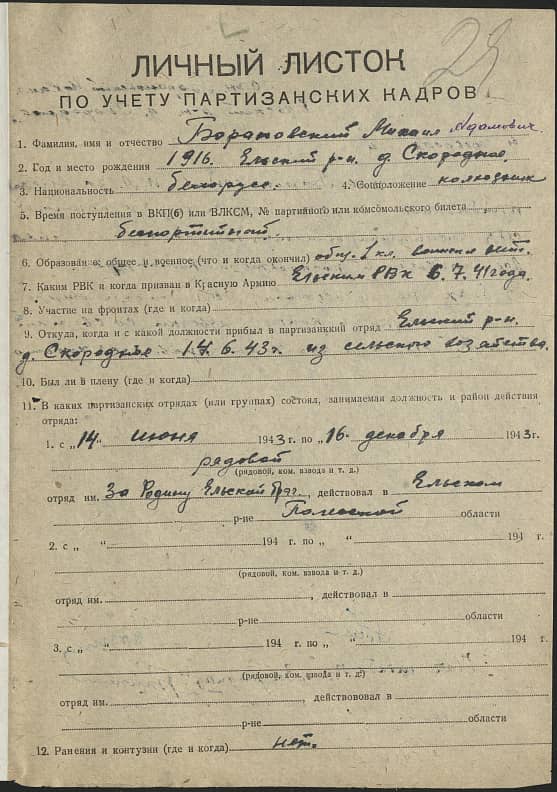 29
ЛИЧНЫЙ ЛИСТОК
ПО УЧЕТУ ПАРТИЗАНСКИХ КАДРОВ
1. Фамилия, имя и отчество Барановский Михаил Адамович.
2. Год и место рождения 1916. Ельский р-н. д. Скородное.
3. Национальность белорусс. 4. Соцположение колхозник
5. Время поступления в ВКП(б) или ВЛКСМ, № партийного или комсомольского билета
беспортийный.
6. Образование общее и военное (что и когда окончил) общ. 1 кл.
7. Каким РВК и когда призван в Красную Армию Ельским РВК 6.7.41 года.
8. Участие на фронтах (где и когда)
9. Откуда, когда и с какой должности прибыл в партизанский отряд Ельский р-н.
д. Скородное 14.6.43 г. из сельского хозяйства.
10. Был ли в плену (где и когда)
11. В каких партизанских отрядах (или группах) состоял, занимаемая должность и район действия
отряда:
1. с „14" июня 1943 г. по „16. декабря 1943 г.
рядовой
(рядовой, ком. взвода и т. д.)
отряд им. За Родину Ельской бриг., действовал в Ельском
р-не Полесской области
2. с „ " 194 г. по „ " 194 г.
(рядовой, ком. взвода и т. д.)
отряд им. , действовал в
р-не области
3. с „ " 194 г. по „ " 194 г.
(рядовой, ком. взвода и т. д.)
отряд им. , действовал в
р-не области
12. Ранения и контузии (где и когда) нет.